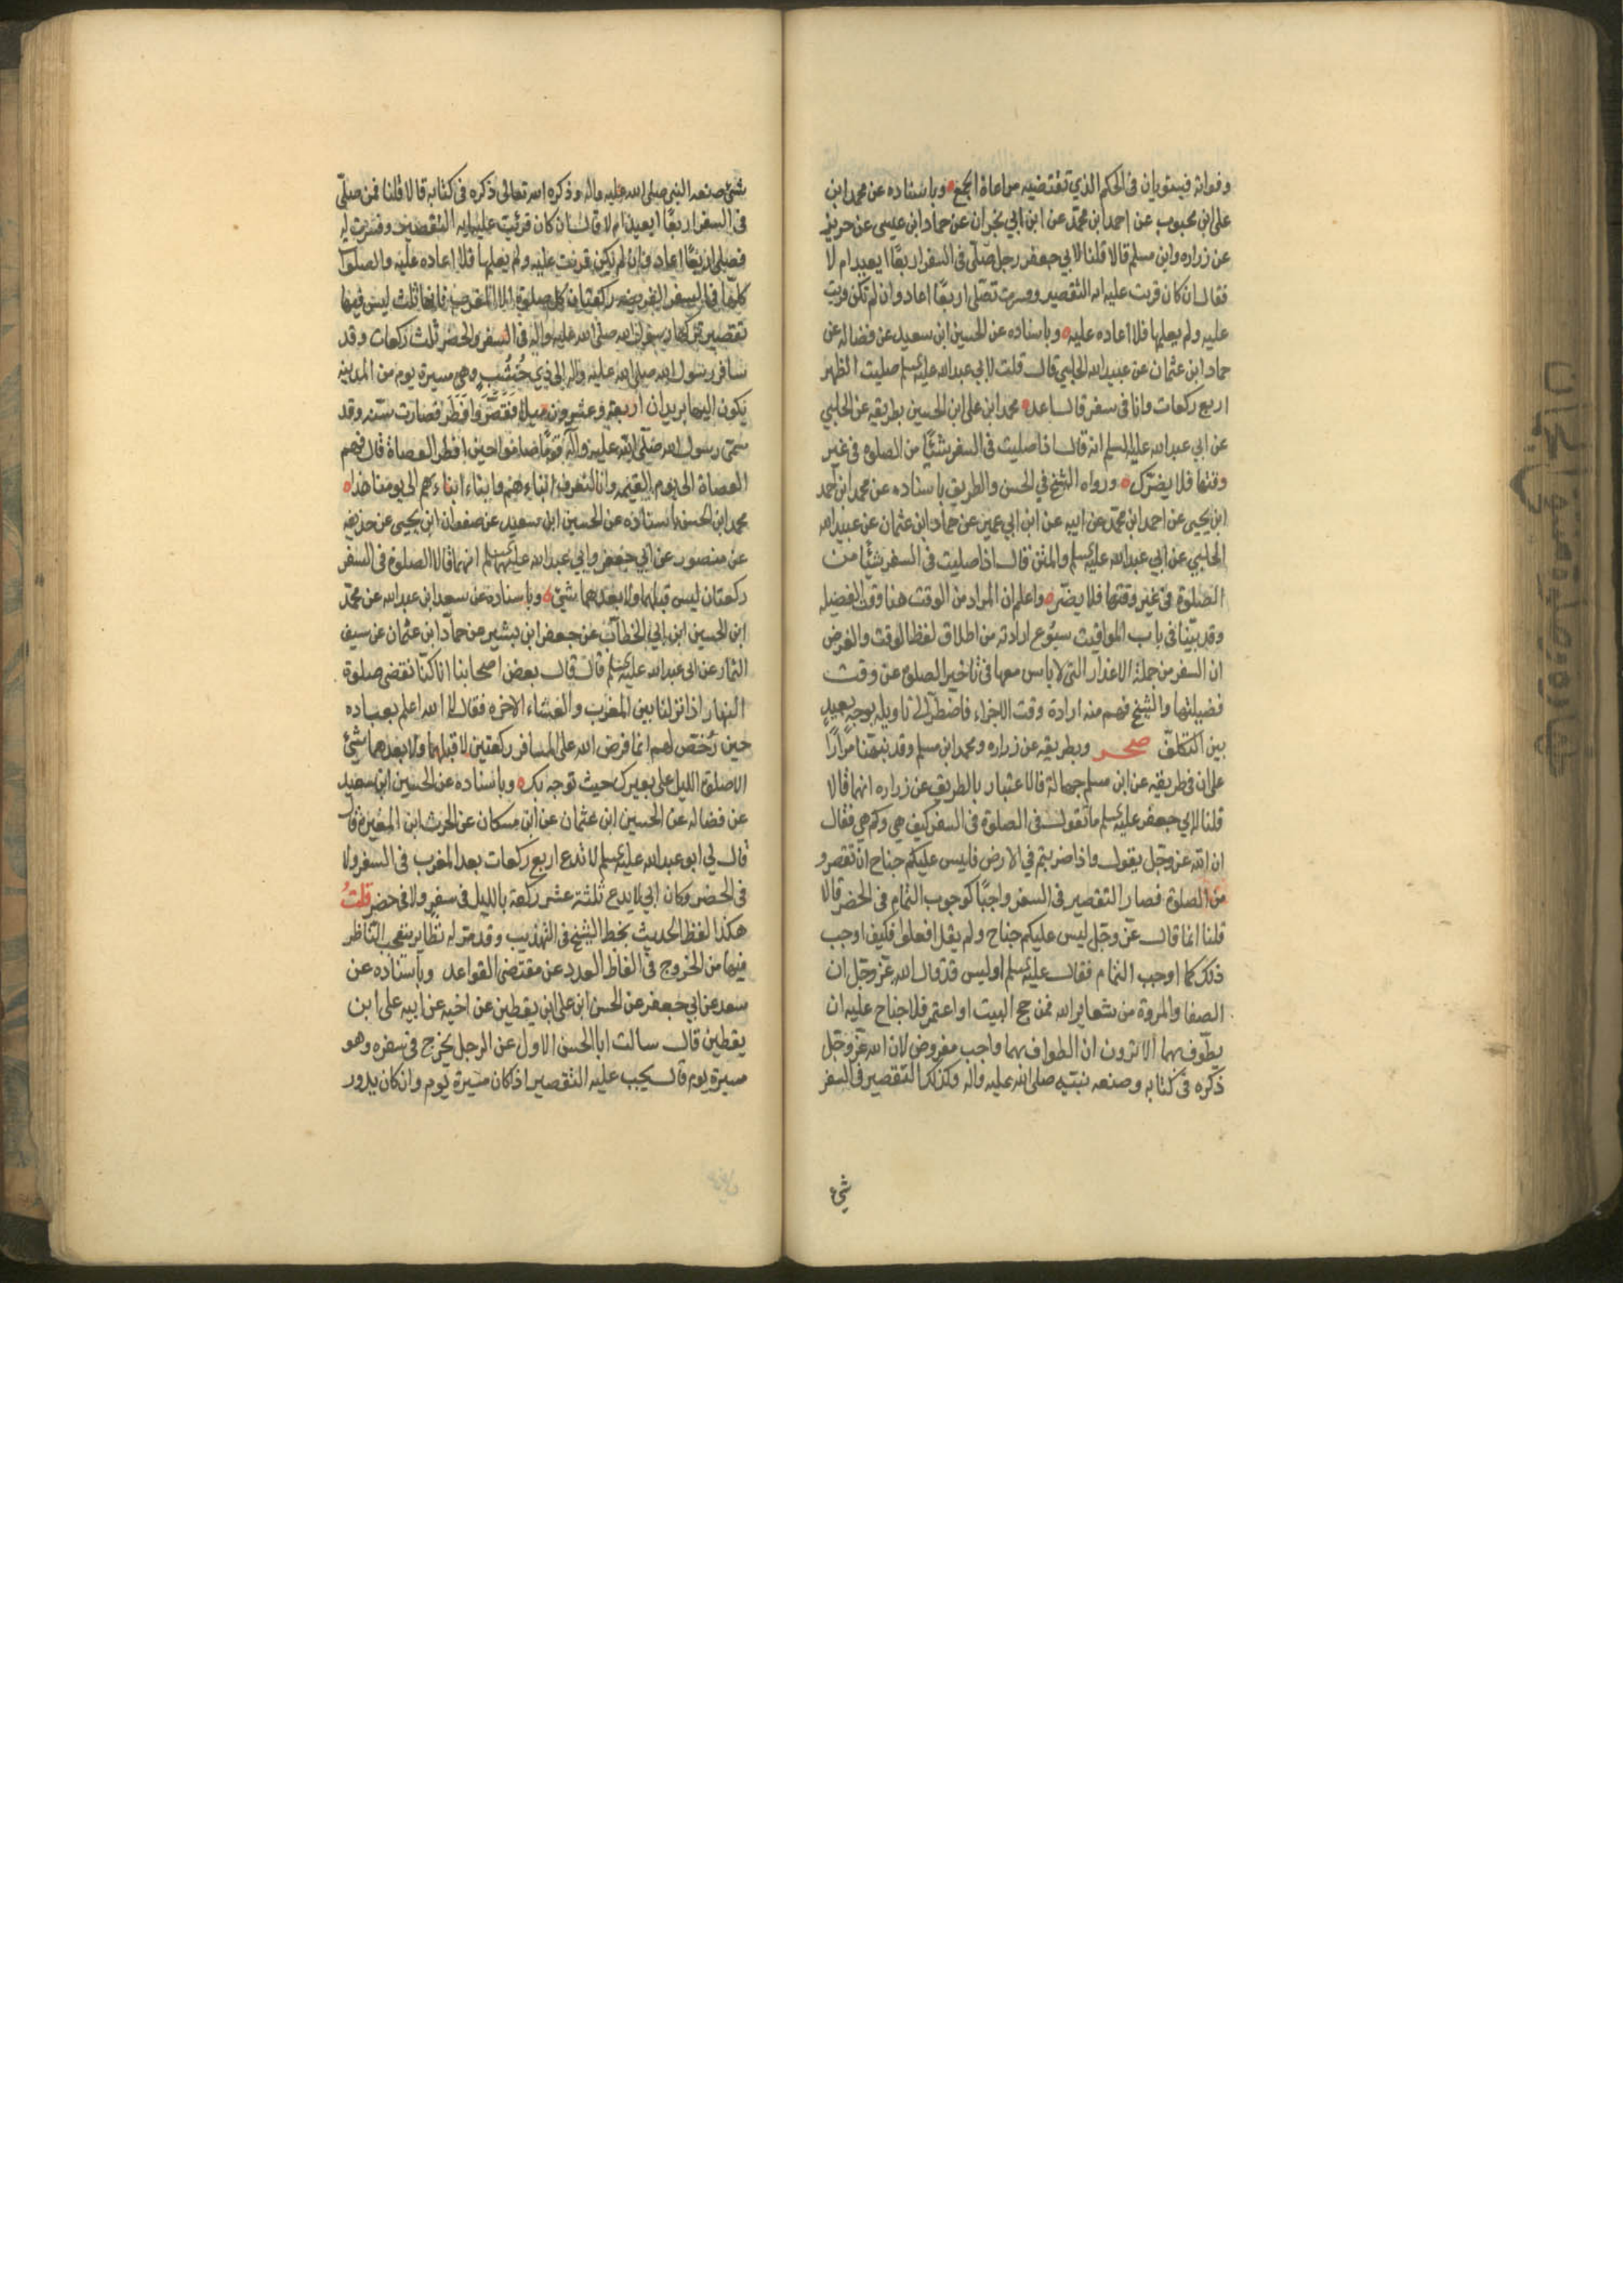 وفواته فيستويان في الحكم الذي تقتضيه مراعاة الجمع وباسناده عن محمد ابن
على ابن محبوب عن احمد ابن محمد عن ابن ابي نجران عن حماد ابن عيسى عن حريز
عن زراره وابن مسلم قالا قلنا لابي جعفر رجل صلّى في السفر اربعًا ايعيد ام لا
فقال ان كان قريت عليه ايه التقصير وفسرت له فصلى اربعًا اعاد وان لم تكن قريت
عليه ولم يعلمها فلا اعاده عليه وباسناده عن الحسين ابن سعيد عن فضاله عن
حماد ابن عثمان عن عبيد الله الحلبي قال قلت لابي عبد الله عليه السلم صليت الظهر
اربع ركعات وانا في سفر قال اعد محمد ابن على ابن الحسين بطريقه عن الحلبي
عن ابي عبد الله عليه السلم انه قال اذا صليت في السفر شيئًا من الصلوة في غير
وقتها فلا يضرّك ورواه الشيخ في الحسن والطريق باسناده عن محمد ابن احمد
ابن يحيى عن احمد ابن محمد عن ابيه عن ابن ابي عمير عن حماد ابن عثمان عن عبيد الله
الحلبي عن ابي عبد الله عليه السلم والمتن قال اذا صليت في السفر شيئًا من
الصلوة في غير وقتها فلا يضرّه واعلم ان المراد من الوقت هنا وقت الفضيله
وقد بيّنا في باب المواقيت سيوّع ارادته من اطلاق لفظ الوقت والغرض
ان السفر من جملة الاعذار التي لا باس معها في تاخير الصلوة عن وقت
فضيلتها والشيخ فهم منه ارادة وقت الاجزاء فاضطرّ الى تاويله بوجه بعيدٍ
بين التكلّف صحر وبطريقه عن زراره ومحمد ابن مسلم وقد نبّهنا مرارًا
على ان في طريقه عن ابن مسلم جهالة فالاعتبار بالطريق عن زراره انهما قالا
قلنا لابي جعفر عليه السلم ما تقول في الصلوة في السفر كيف هي وكم هي فقال
ان الله عز وجل يقول واذا ضربتم في الارض فليس عليكم جناح ان تقصروا
من الصلوة فصار التقصير في السفر واجبًا كوجوب التمام في الحضر قالا
قلنا انما قال عزّ وجل ليس عليكم جناح ولم يقل افعلوا فكيف اوجب
ذلك كما اوجب التمام فقال عليه السلم اوليس قد قال الله عز وجل ان
الصفا والمروة من شعاير الله فمن حج البيت او اعتمر فلا جناح عليه ان
يطّوف بهما الا ترون ان الطواف بهما واجب مفروض لان الله عز وجل
ذكره في كتابه وصنعه نبيّه صلى الله عليه واله وكذلك التقصير في السفر
شيء
شئ صنعه النبي صلى الله عليه واله وذكره الله تعالى ذكره في كتابه قالا قلنا فمن صلّى
في السفر اربعًا ايعيد ام لا قال ان كان قرئت عليه ايه التقصير وفسرت له
فصلى اربعًا اعاد وان لم يكن قرئت عليه ولم يعلمها فلا اعاده عليه والصلوات
كلها في السفر الفريضه ركعتان كل صلوة الا المغرب فانها ثلث ليس فيها
تقصير تركها رسول الله صلى الله عليه واله في السفر والحضر ثلث ركعات وقد
سافر رسول الله صلى الله عليه واله الى ذي خُشُب وهي مسيرة يوم من المدينه
يكون اليها بريدان اربعة وعشرون ميلا فقصّر وافطر فصارت سنّه وقد
سمّى رسول الله صلى الله عليه وآله قومًا صاموا حين افطر العصاة قال فهم
العصاة الى يوم القيمه وانا لنعرف ابناءهم وابناء ابناءهم الى يومنا هذا
محمد ابن الحسن باسناده عن الحسين ابن سعيد عن صفوان ابن يحيى عن حذيفه
عن منصور عن ابي جعفر وابي عبد الله عليهما السلم انهما قالا الصلوة في السفر
ركعتان ليس قبلهما ولا بعدهما شئ وباسناده عن سعد ابن عبد الله عن محمد
ابن الحسين ابن ابي الخطاب عن جعفر ابن بشير عن حماد ابن عثمان عن سيف
التمار عن ابي عبد الله عليه السلم قال قال بعض اصحابنا انا كنّا نقضي صلوة
النهار اذا نزلنا بين المغرب والعشاء الاخره فقال لا الله اعلم بعباده
حين رُخّص لهم انما فرض الله على المسافر ركعتين لا قبلهما ولا بعدهما شئ
الا صلوة الليل على بعيرك حيث توجه بك وباسناده عن الحسين ابن سعيد
عن فضاله عن الحسين ابن عثمان عن ابن مسكان عن الحرث ابن المغيرة قال
قال لي ابو عبد الله عليه السلم لا تدع اربع ركعات بعد المغرب في السفر ولا
في الحضر وكان ابي لا يدع ثلثة عشر ركعة بالليل في سفر ولا في حضر قلتُ
هكذا لفظ الحديث بخط الشيخ في التهذيب وقد مرّ له نظاير يتعجب الناظر
فيها من الخروج في الفاظ العدد عن مقتضى القواعد وباسناده عن
سعد عن ابي جعفر عن الحسن ابن على ابن يقطين عن اخيه عن ابيه على ابن
يقطين قال سالت ابا الحسن الاول عن الرجل يخرج في سفره وهو
مسيرة يوم قال يجب عليه التقصير اذا كان مسيرة يوم وان كان يدور